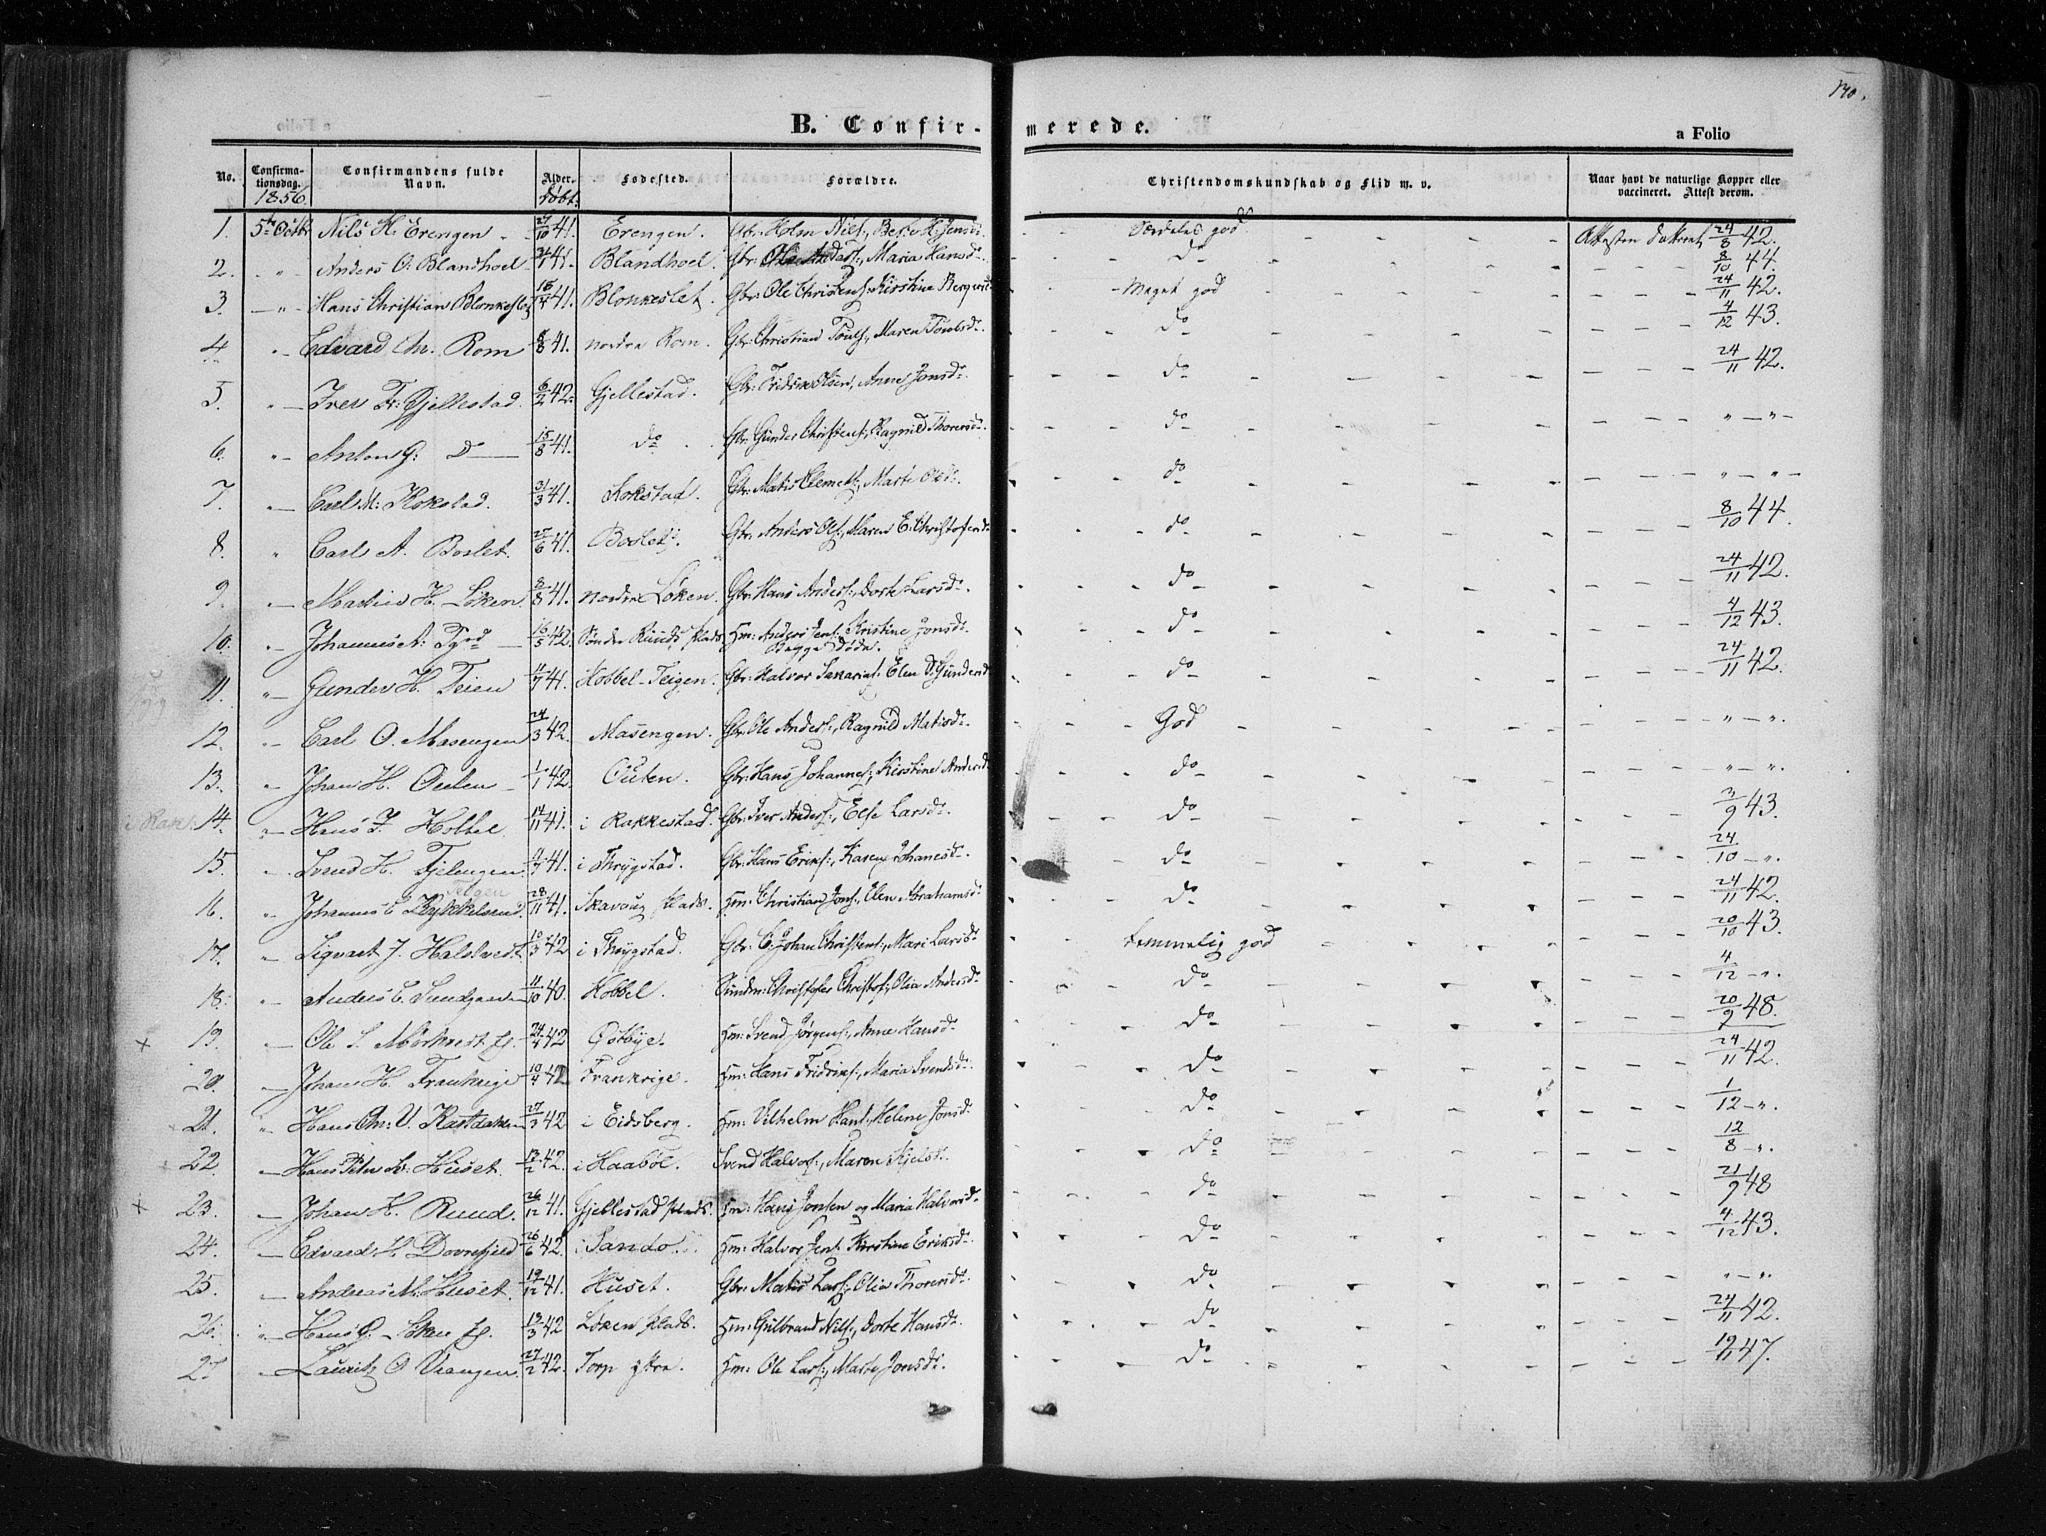 140.
B. Confirmerede.
a Folio
No. Confirmationsdag. Confirmandens fulde Navn. Alder. Fødested. Forældre. Christendomskundskab og Flid m. v. Naar havt de naturlige Kopper eller vaccineret. Attest derom.
1856. født.
1. 5te Octbr Nils H. Erengen 27/10 41. Erengen. Gbr: Holm Nils:, H. Jensd: Særdeles god Attesten dateret 24/8 42.
2. " Anders O. Blandhoel 41. Blandhoel. Gbr: Maria Hansd: do 8/10 44.
3. " Hans Christian Blonkeslet 16/4 41. Blonkeslet. Gbr: Ole Christens: Kirstine Meget god 24/11 42.
4. " Edvard Chr. Rom 8/8 41. nordre Rom. Gbr: Christian Maren do 4/12 43.
5. " Iver Fr: Gjellestad. 6/2 42. Gjellestad. Gbr: Fridrik Olsen, Anne Jonsd: do 24/11 42.
6. " Anton G: Do 15/8 41. do. Gbr: Gunder Christens:, Ragnild Thorersd: do " "
7. " Carl M: Kokstad. 31/3 41. Kokstad. Gbr: Matis Clemets:, Marte Olsd: do " "
8. " Carl A. Boslet. 25/6 41. Boslet. Gbr: Anders Ols:, Maren E. Christofersd: do 8/10 44.
9. " Martius H. Løken. 8/8 41. nordre Løken. Gbr: Hans Anders:, Dorte Larsd: do 24/11 42.
10. " Johannes A: 16/5 42. Søndre Ruuds plads Hm: Anders Jens: Kristine Jonsd: do 4/12 43.
Begge Døde.
11. " Gunder H. Teien 11/7 41. Hobbel-Teigen. Gbr: Halvor Sakarias: Elen D. Gundersd: do 24/11 42.
12. " Carl O. Masengen 24/3 42. Masengen. Gbr: Ole Anders:, Ragnild Matisd: God " ".
13. " Johan H. Outen 1/1 42. Outen. Gbr: Hans Johannes:, Kirstine Andersd: do " ".
i Rak. 14. " Hans I. Holtee 14/11 41. i Rakkestad. Gbr: Iver Anders:, Else Larsd: do 3/9 43.
15. " Svend H. Fjelengen 41. i Thrygstad. Gbr: Hans Eriks:, Karen Johanesd: do 24/10 ".
Teigen
16. " Johannes C. Kykkelsrud 28/11 41. Skavoug plads. Hm: Christian Jons:, Elen Abrahamsd: do 24/11 42.
17. " Sigvart J. Halstvedt 10/3 42 i Thrygstad. Gbr: C. Johan Christens:, Mari Larsd: temmelig god 20/10 43.
18. " Anders C. 11/10 40. Hobbel. Christofer Christof:, Olia Andersd: do 4/12 ".
x 19. " Ole S. Mørkvest 24/4 42 Østbye. Hm: Svend Jørgens:, Anne Hansd: do 20/9 48.
20. " Johan H. Frankrige 10/4 42 Frankrige. Hm: Hans Fridriks:, Maria Svendsd: do 24/11 42.
x 21. " Hans Chr: V. Kastdalen 27/3 42 i Eidsberg. Hm: Vilhelm Hans: Helene Jonsd: do 1/12 ".
22. " Hans Peter S. Huset. 13/2 42. i Haabøl. Svend Halvors:, Maren Kjelsd: do 12/8 ".
x 23. " Johan H. Ruud. 26/12 41. Gjellestad plads. Hm: Hans Jonsen og Maria Halvorsd: do 21/9 48
24. " Edvard H. Dovrefjeld 26/6 42. i Sando. Hm: Halvor Jens: Kirstine Eriksd: do 4/12 43.
25. " Andreas M. Huset. 19/12 41. Huset. Gbr: Matis Lars:, Olia Thorersd: do " ".
26. " Hans G. Løken 13/3 42 Løken plads. Hm: Gulbrand Nils:, Dorte Hansd: do 24/11 42.
27 " Lauritz O. Vrangen. 27/2 42. Torp ytre. Hm: Ole Lars:, Marte Jonsd: do 19/11 47.